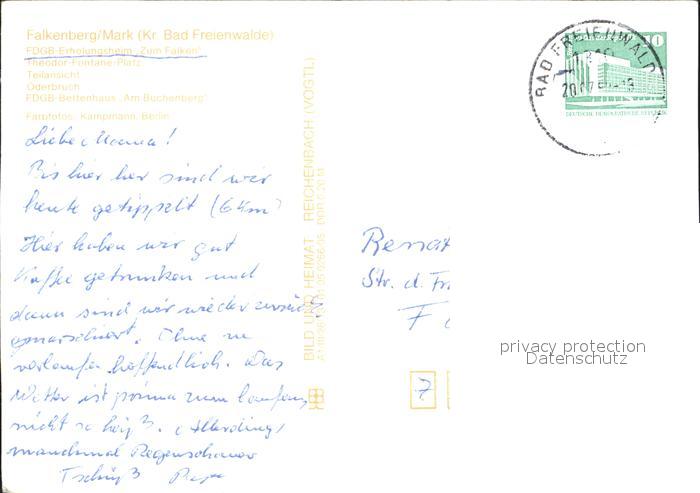 Falkenberg/Mark (Kr. Bad Freienwalde)
FDGB-Erholungsheim „Zum Falken"
Theodor-Fontane-Platz
Teilansicht
Oderbruch
FDGB-Bettenhaus „Am Buchenberg"
Farbfotos: Kampmann, Berlin
Liebe Mama!
Bis hier her sind wir
heute getippelt (6 km)
Hier haben wir gut
Kaffee getrunken und
dann sind wir wieder zurück
marschiert. Ohne zu
verlaufen hoffentlich. Das
Wetter ist prima zum laufen,
nicht so heiß. (Allerdings
manchmal Regenschauer
Tschüß
BILD UND HEIMAT REICHENBACH (VOGTL)
BAD FREIENWALDE
DEUTSCHE DEMOKRATISCHE REPUBLIK
Renat
Str. d. Fr
F
7
privacy protection
Datenschutz